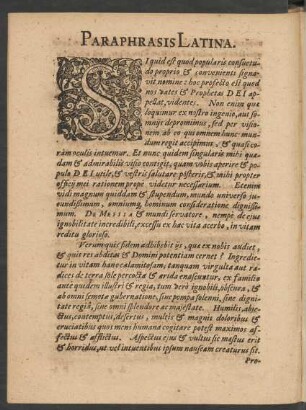 PARAPHRASIS LATINA.
SI quid est quod popularis consuetu-
do proprio & convenienti signa-
vit nomine: hoc profecto est quod
nos vates & Prophetas DEI ap-
pellat, videntes. Non enim quæ
loquimur ex nostro ingenio, aut so-
mnijs depromimus, sed per visio-
nem ab eo qui omnem hunc mun-
dum regit accipimus, & quasi co-
ràm oculis intuemur. Et nunc quidem singularis mihi quæ-
dam & admirabilis visio contigit, quam vobis aperire & po-
pulo DEI utile, & vestræ saluti, posteris, & mihi propter
officij mei rationem prope videtur necessarium. Etenim
vidi magnum quiddam & stupendum, mundo universo ju-
cundissimum, omnium hominum consideratione dignissi-
mum. De MESSIA & mundi servatore, nempe de ejus
ignobilitate incredibili, excessu ex hac vita acerbo, in vitam
reditu glorioso.
Verum quis fidem adhibebit ijs, quæ ex nobis audiet,
& quis res abditas & Domini potentiam cernet? Ingredie-
tur in vitam hanc calamitosam, tanquam virgulta aut ra-
dices de terra sole perusta & arida enascuntur, ex familia
ante quidem illustri & regia, tum verò ignobili, obscura, &
ab omni semota gubernatione, sine pompa solenni, sine digni-
tate regia, sine omni splendore ac majestate. Humilis, abje-
ctus, contemptus, desertus, multis & magnis doloribus &
cruciatibus quos mens humana cogitare potest maximos af-
fectus & afflictus. Aspectus ejus & vultus sic mæstus erit
& horridus, ut vel intuentibus ipsum nauseam creaturus sit.
Pro-